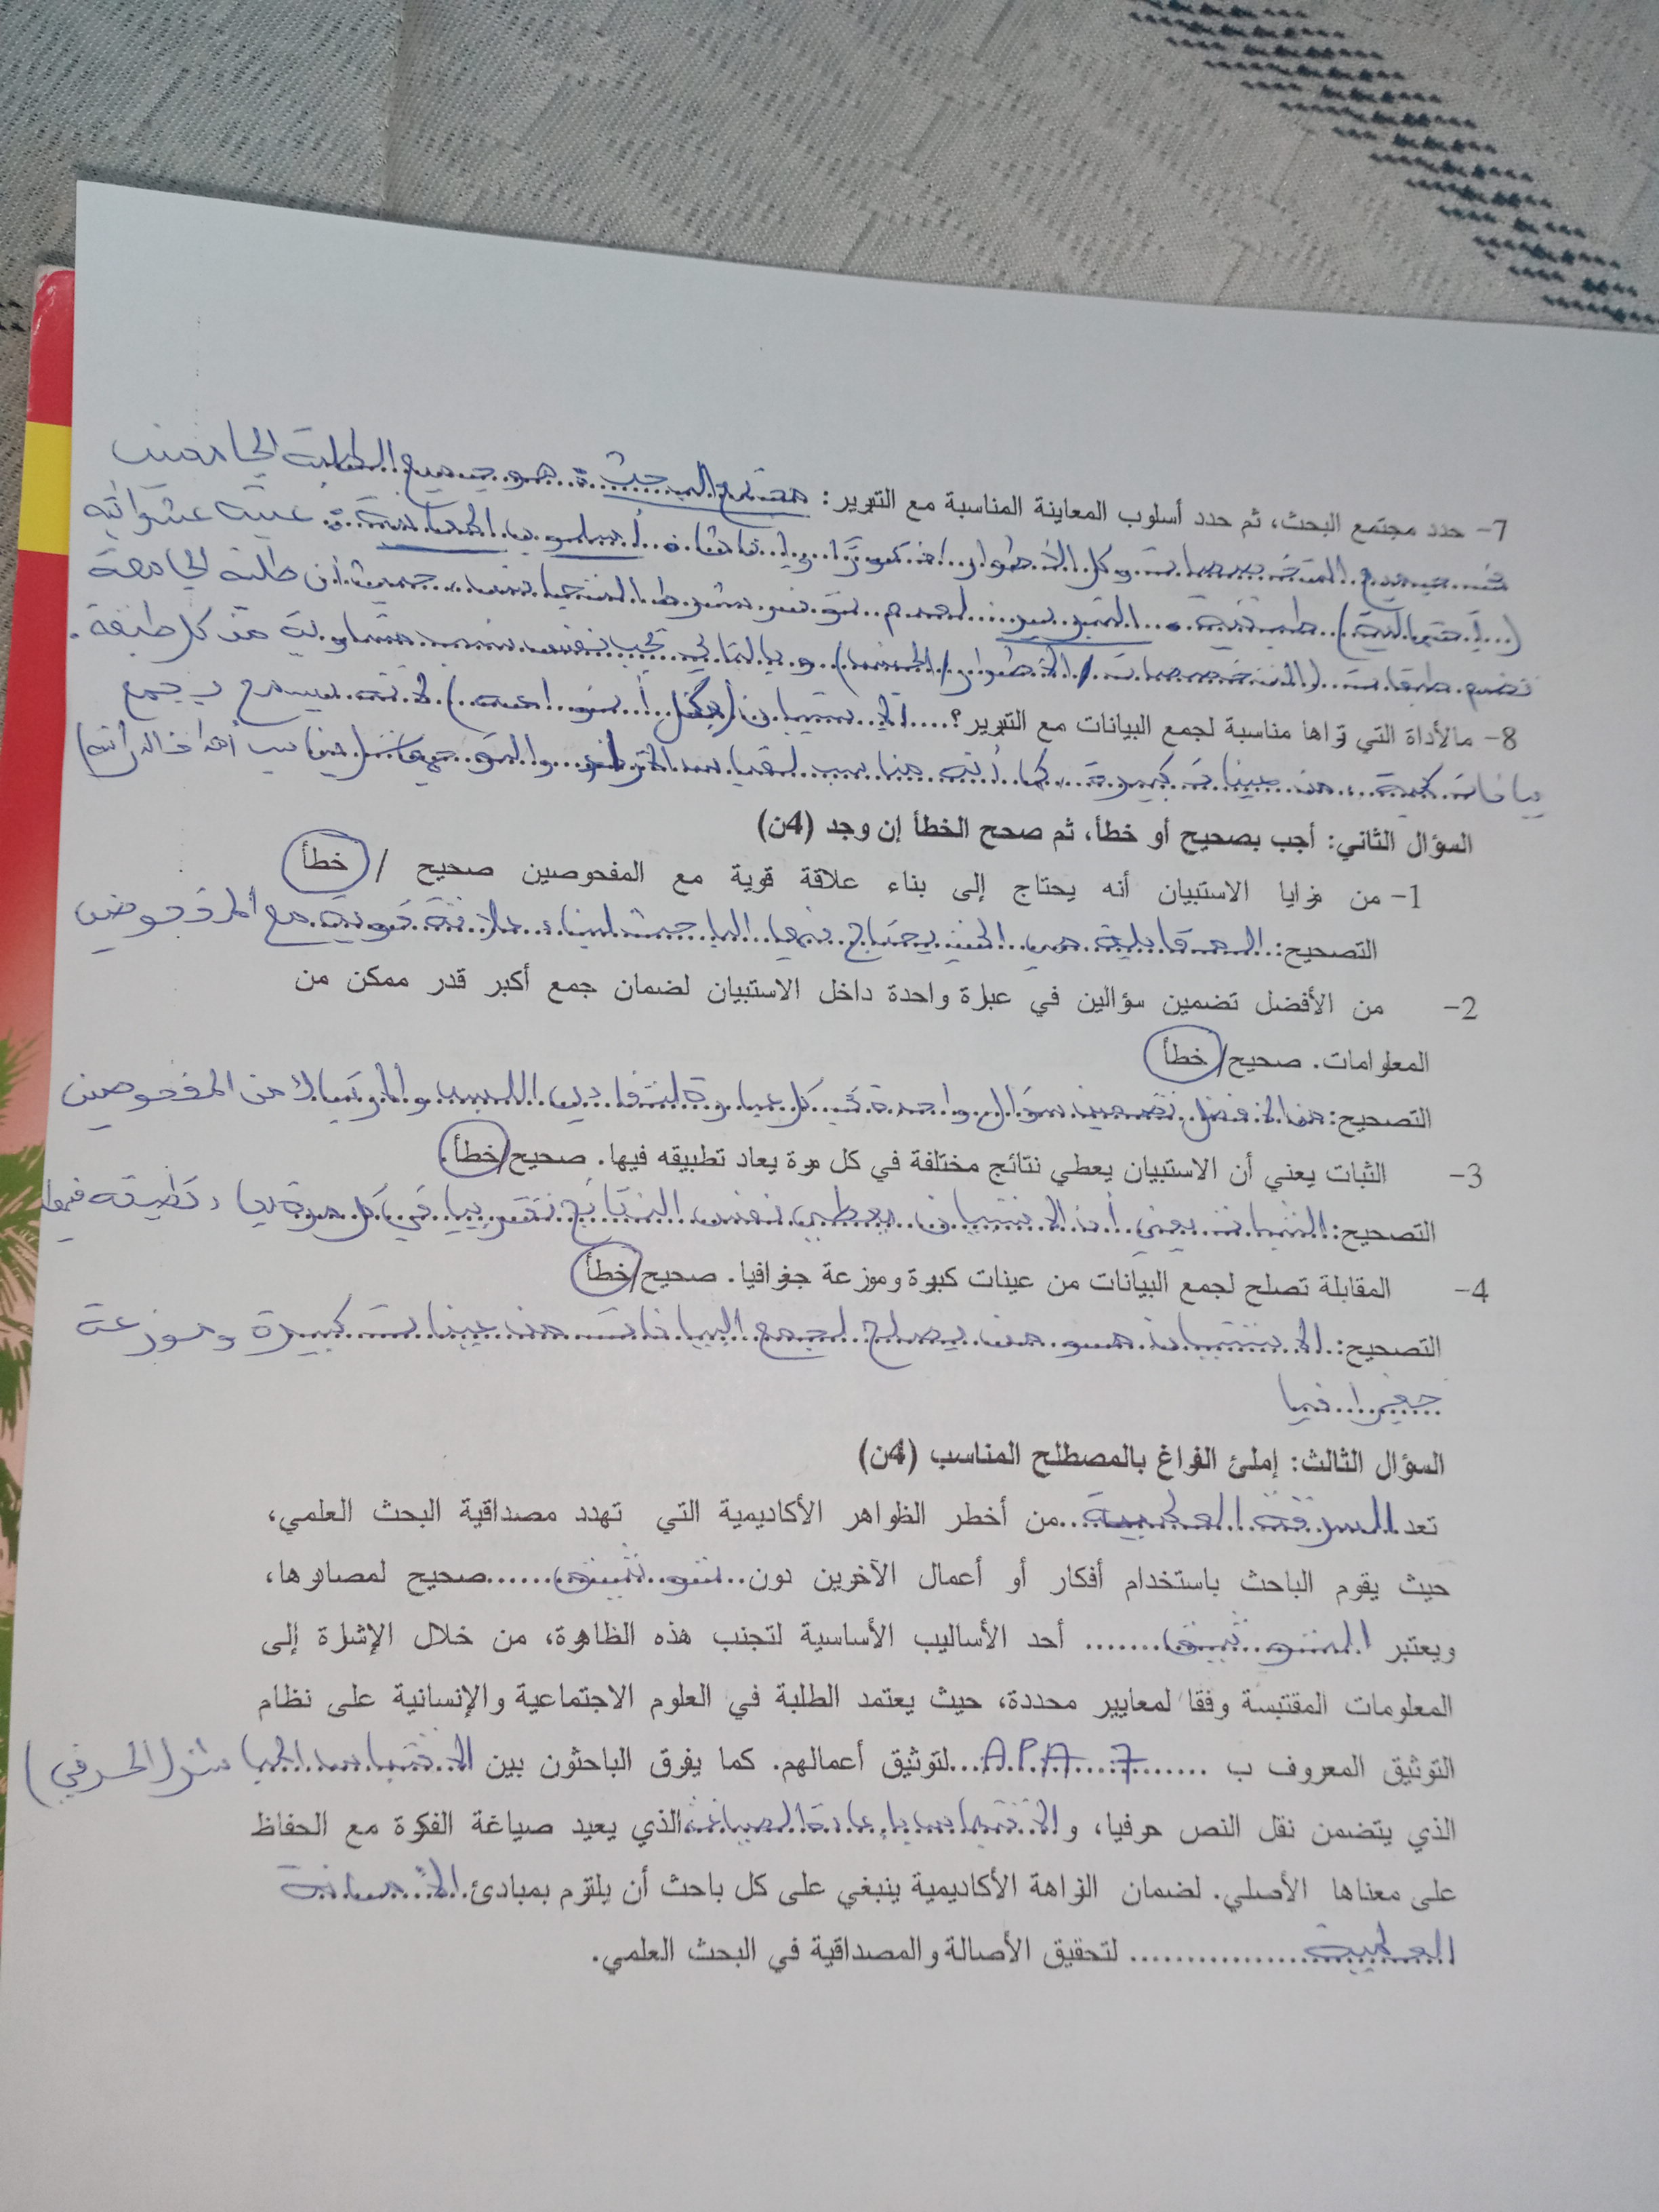 7- حدد مجتمع البحث، ثم حدد أسلوب المعاينة المناسبة مع التبرير: مجتمع البحث: هو جميع الطلبة الجامعيين
في جميع التخصصات وكل الأطوار ذكورًا وإناثا. أسلوب المعاينة: عينة عشوائية
(إحتمالية) طبقية. التبرير: لعدم توفر شرط التجانس حيث أن طلبة الجامعة
تضم طبقات (التخصصات / الأطوار / الجنس) وبالتالي يجب نفس نسب متساوية من كل طبقة.
8- مالأداة التي تراها مناسبة لجمع البيانات مع التبرير؟ الاستبيان (بكل أنواعه) لأنه يسمح بجمع
بيانات كمية من عينات كبيرة، كما أنه مناسب لقياس والتوجهات (يناسب أهداف الدراسة)
السؤال الثاني: أجب بصحيح أو خطأ، ثم صحح الخطأ إن وجد (4ن)
1- من مزايا الاستبيان أنه يحتاج إلى بناء علاقة قوية مع المفحوصين صحيح / خطأ
التصحيح: المقابلة هي التي يحتاج فيها الباحث لبناء علاقة قوية مع المفحوصين
2- من الأفضل تضمين سؤالين في عبارة واحدة داخل الاستبيان لضمان جمع أكبر قدر ممكن من
المعلومات. صحيح/خطأ
التصحيح: من الأفضل تضمين سؤال واحدة في كل عبارة لتفادي اللبس والارتباك من المفحوصين
3- الثبات يعني أن الاستبيان يعطي نتائج مختلفة في كل مرة يعاد تطبيقه فيها. صحيح/خطأ.
التصحيح: الثبات يعني أن الاستبيان يعطي نفس النتائج تقريبا في كل مرة يعاد تطبيقه فيها
4- المقابلة تصلح لجمع البيانات من عينات كبيرة وموزعة جغرافيا. صحيح/خطأ
التصحيح: الاستبيان هو من يصلح لجمع البيانات من عينات كبيرة وموزعة
جغرافيا
السؤال الثالث: إملئ الفراغ بالمصطلح المناسب (4ن)
تعد السرقة العلمية من أخطر الظواهر الأكاديمية التي تهدد مصداقية البحث العلمي،
حيث يقوم الباحث باستخدام أفكار أو أعمال الآخرين دون توثيق صحيح لمصادرها،
ويعتبر التوثيق أحد الأساليب الأساسية لتجنب هذه الظاهرة، من خلال الإشارة إلى
المعلومات المقتبسة وفقا لمعايير محددة، حيث يعتمد الطلبة في العلوم الاجتماعية والإنسانية على نظام
التوثيق المعروف ب APA 7 لتوثيق أعمالهم. كما يفرق الباحثون بين الاقتباس المباشر (الحرفي)
الذي يتضمن نقل النص حرفيا، والاقتباس بإعادة الصياغة الذي يعيد صياغة الفكرة مع الحفاظ
على معناها الأصلي. لضمان النزاهة الأكاديمية ينبغي على كل باحث أن يلتزم بمبادئ الأمانة
العلمية لتحقيق الأصالة والمصداقية في البحث العلمي.